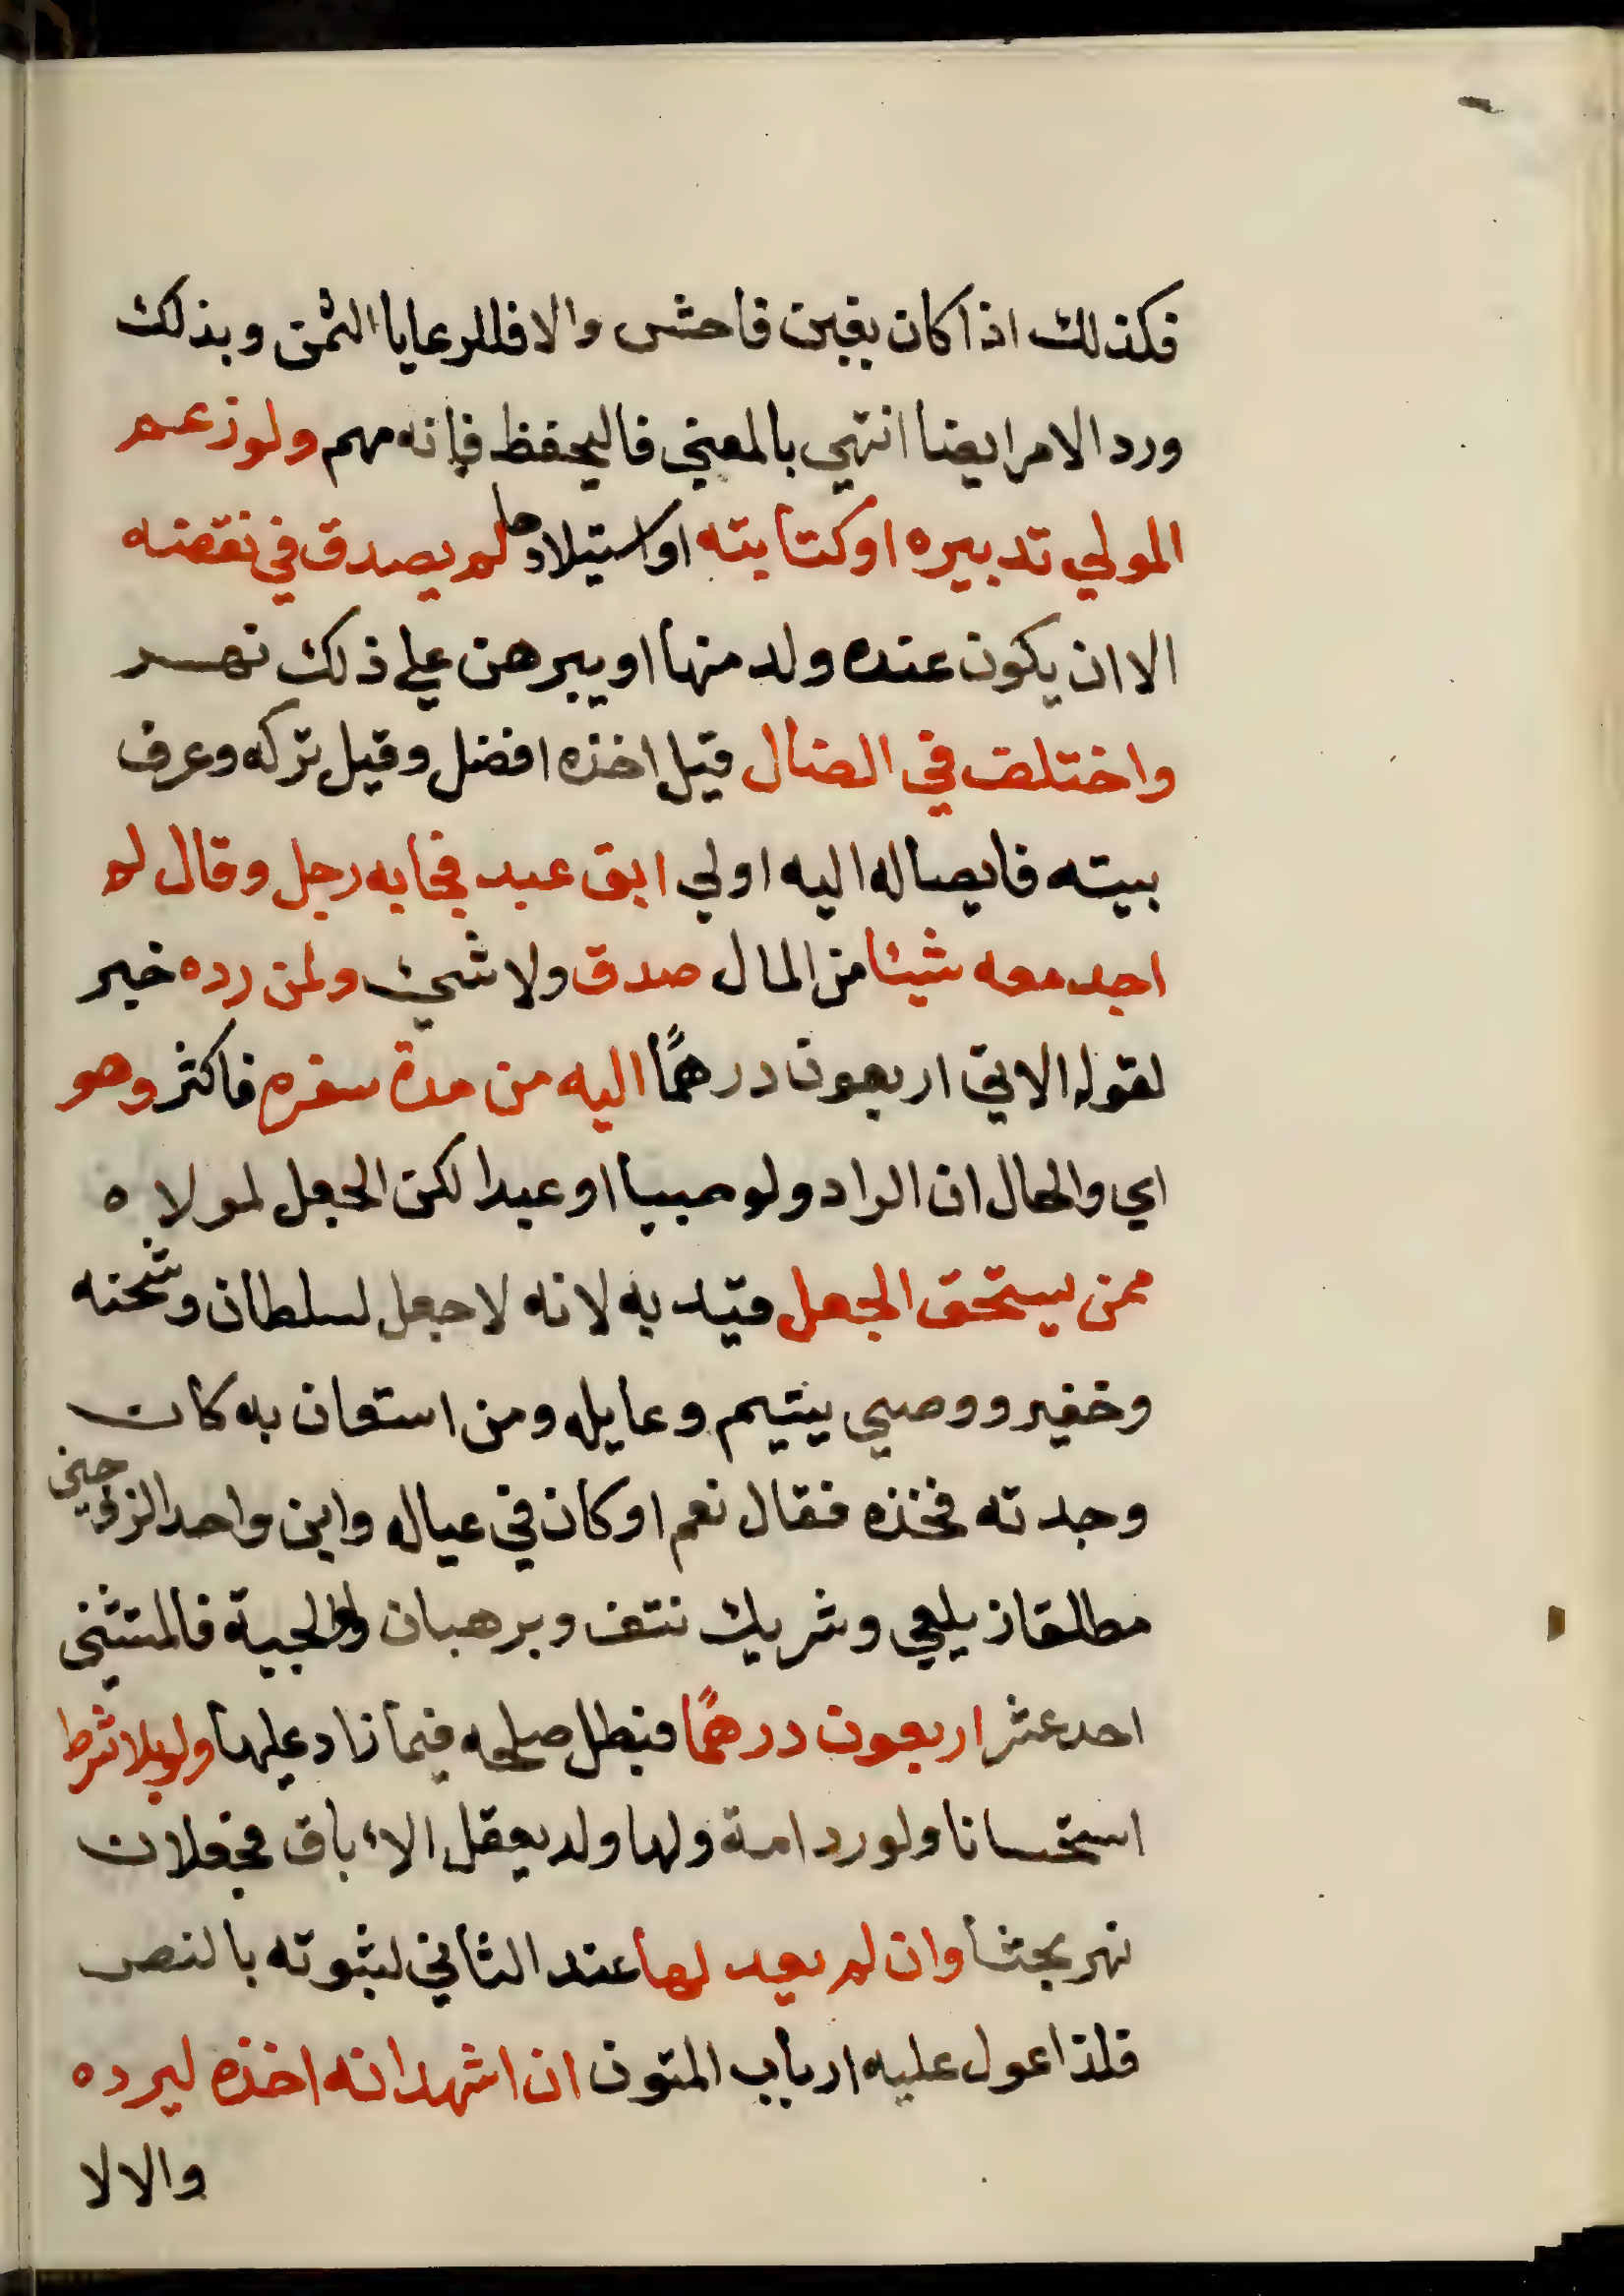 فكذلك اذا كان بغبن فاحش والا فللرعايا الثمن وبذلك
ورد الامر ايضا انتهي بالمعني فاليحفظ فإنه مهم ولو زعم
المولي تدبيره او كتابته او استيلادها لم يصدق في نقضه
الا ان يكون عنده ولد منها او يبرهن علي ذلك نهر
واختلف في الضال قيل اخذه افضل وقيل تركه وعرف
بيته فايصاله اليه اولي ابق عبد فجا به رجل وقال لم
اجد معه شيئا من المال صدق ولا شئ ولمن رده خبر
لقوله الاتي اربعون درهمًا اليه من مدة سفره فاكثر وهو
اي والحال ان الراد ولو صبيا او عبدا لكن الجعل لمولاه
ممن يستحق الجعل قيد به لانه لا جعل لسلطان وشحنه
وخفير ووصي يتيم وعايله ومن استعان به كان
وجدته فخذه فقال نعم او كان في عياله وابن واحد الزوجين
مطلقا زيلعي وشريك نتف وبرهبان والجية فالمتثني
احد عشر اربعون درهمًا فبطل صلحه فيما زاد عليها ولو بلا شرط
استحسانا ولو رد امة ولها ولد يعقل الاباق فجعلان
نهر بحثا وان لم يعد لها عند الثاني لثبوته بالنص
فلذا عول عليه ارباب المتون ان اشهد انه اخذه ليرده
والا لا